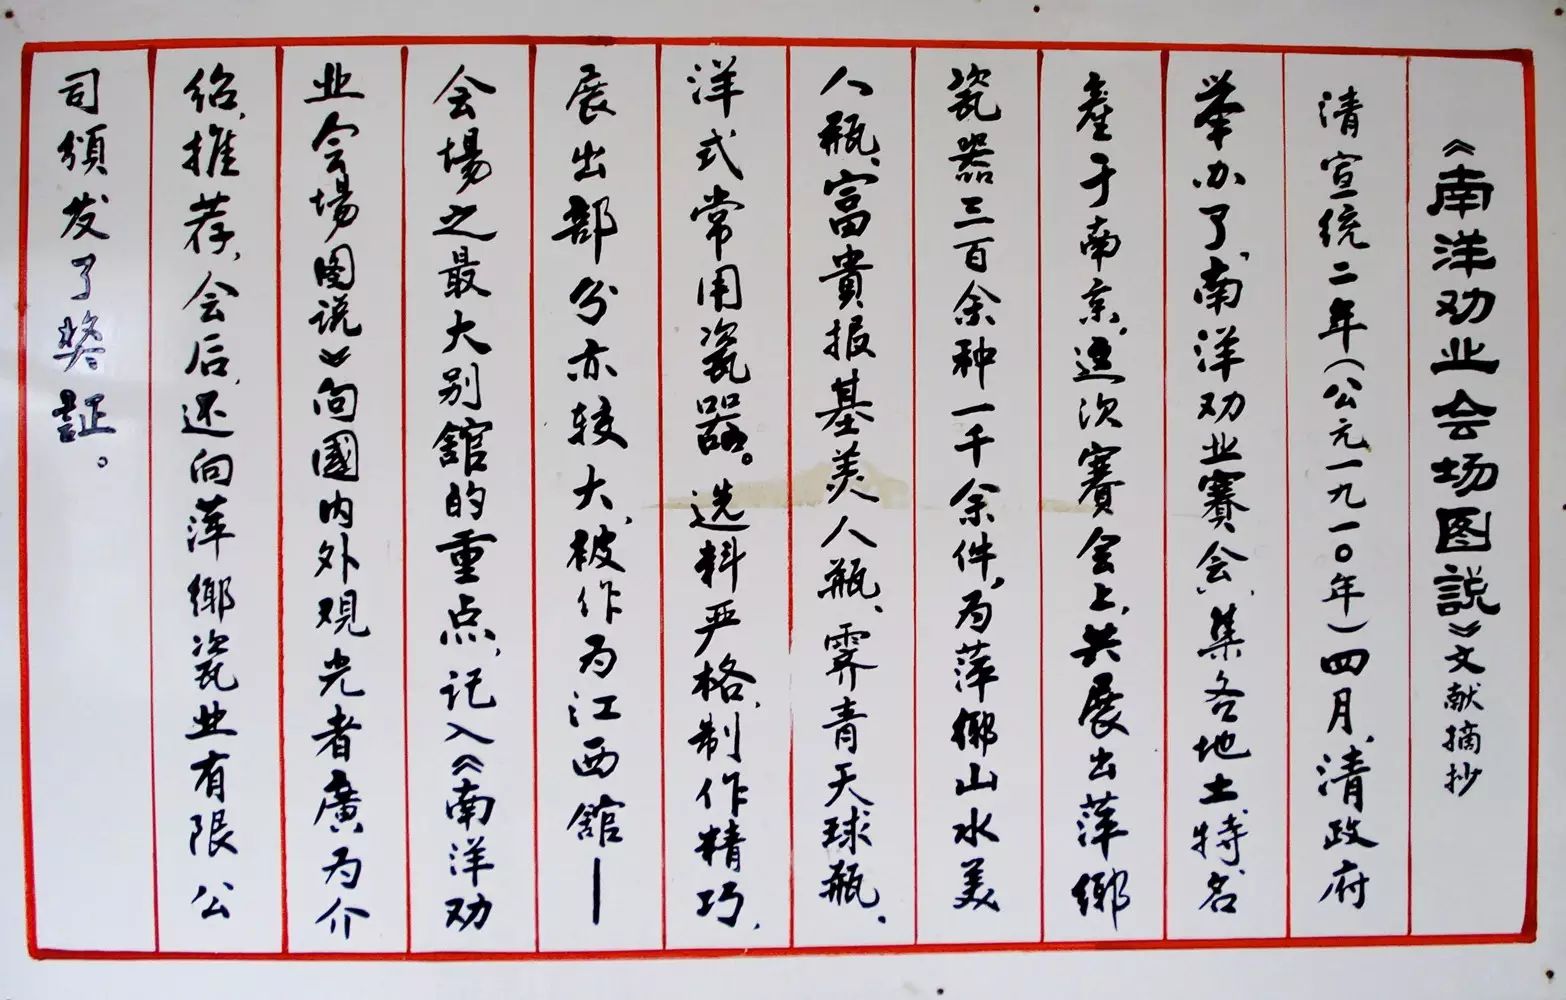 《南洋劝业会场图説》文献摘抄
清宣统二年(公元一九一〇年)四月,清政府
举办了,南洋劝业賽会,集各地土特名
産于南京,这次賽会上,共展出萍鄉
瓷器三百余种一千余件,为萍鄉山水美
人瓶、富貴报基美人瓶、霁青天球瓶.
洋式常用瓷器。选料严格,制作精巧.
展出部分亦较大,被作为江西舘—
会場之最大别舘的重点,记入《南洋劝
业会場图说》向國内外观光者廣为介
绍,推荐,会后,还向萍鄉瓷业有限公
司頒发了奖証。